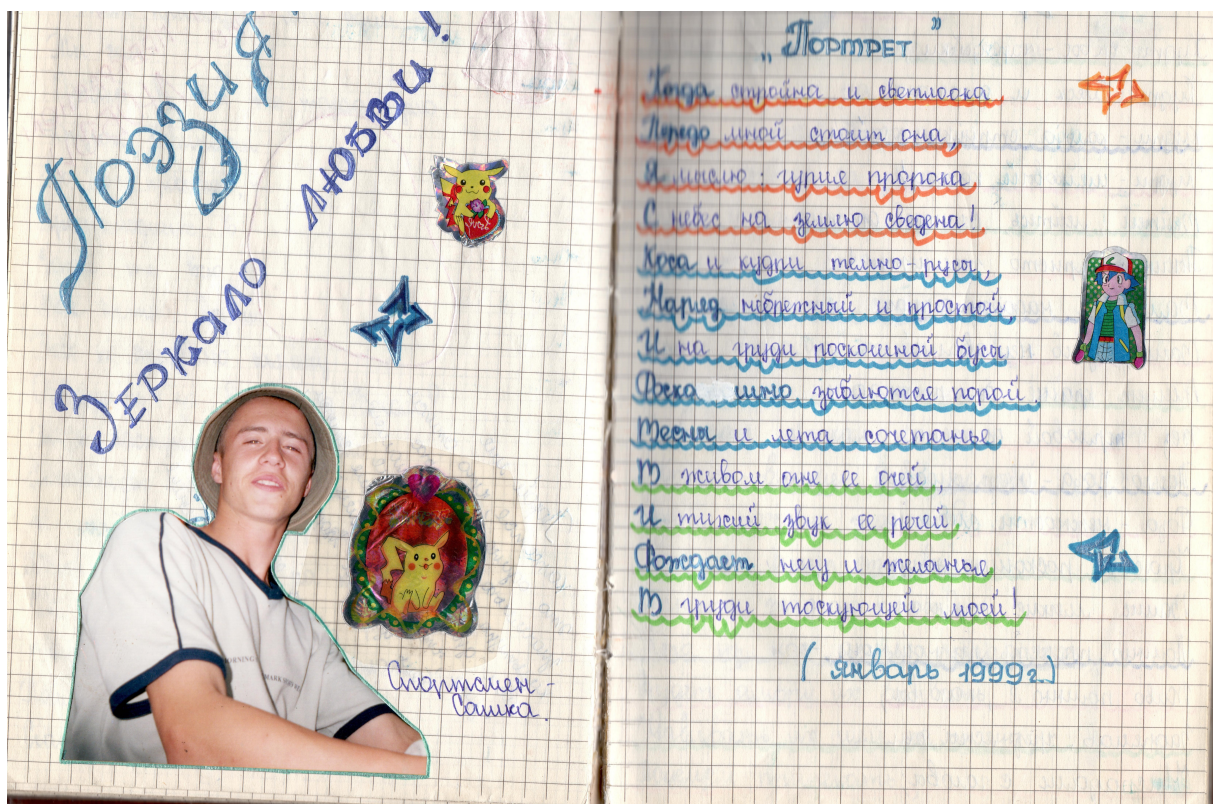 Поэзия
Зеркало любви!
Спортсмен -
Сашка.
„Портрет”
Когда стройна и светлоока
Передо мной стоит она,
Я мыслю: гурия пророка
С небес на землю сведена!
Коса и кудри темно-русы,
Наряд небрежный и простой,
И на груди роскошной бусы
Роскошно зыблются порой.
Весны и лета сочетанье
В живом огне ее очей,
И тихий звук ее речей
Рождает негу и желанья
В груди тоскующей моей!
(январь 1999г.)